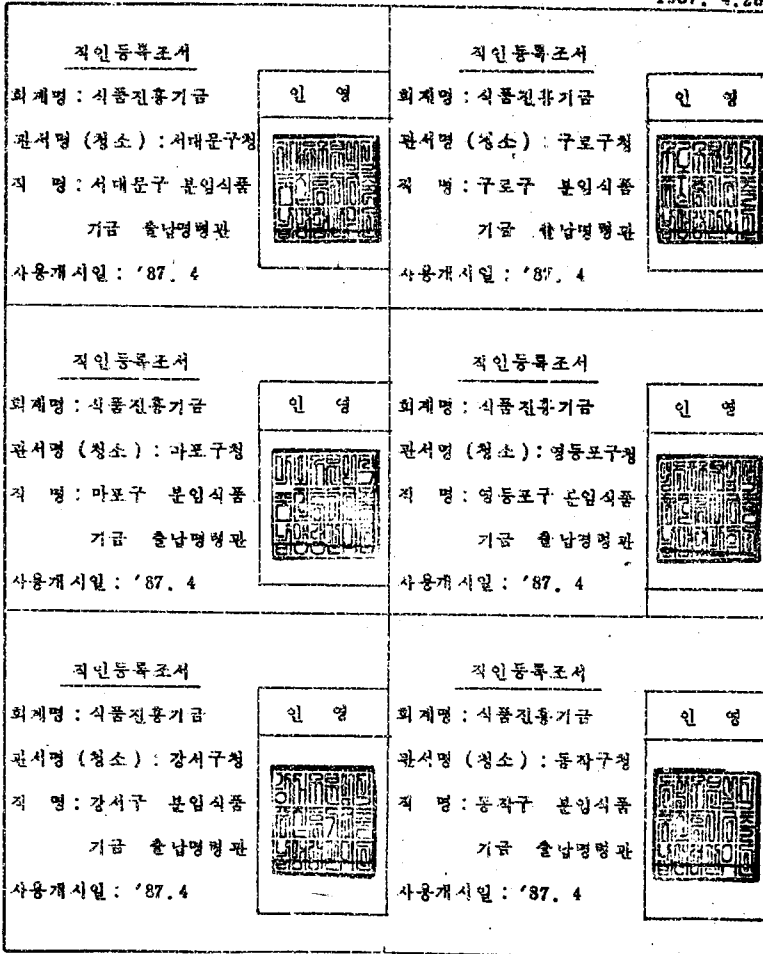 1987. 4.28
직인등록조서
회계명 : 식품진흥기금
관서명 (청소) : 서대문구청
직 명 : 서대문구 분임식품
기금 출납명령관
사용개시일 : '87. 4
인 영
직인등록조서
회계명 : 식품진흥기금
관서명 (청소) : 구로구청
직 명 : 구로구 분임식품
기금 출납명령관
사용개시일 : '87. 4
인 영
직인등록조서
회계명 : 식품진흥기금
관서명 (청소) : 마포구청
직 명 : 마포구 분임식품
기금 출납명령관
사용개시일 : '87. 4
인 영
직인등록조서
회계명 : 식품진흥기금
관서명 (청소) : 영등포구청
직 명 : 영등포구 분임식품
기금 출납명령관
사용개시일 : '87. 4
인 영
직인등록조서
회계명 : 식품진흥기금
관서명 (청소) : 강서구청
직 명 : 강서구 분임식품
기금 출납명령관
사용개시일 : '87. 4
인 영
직인등록조서
회계명 : 식품진흥기금
관서명 (청소) : 동작구청
직 명 : 동작구 분임식품
기금 출납명령관
사용개시일 : '87. 4
인 영